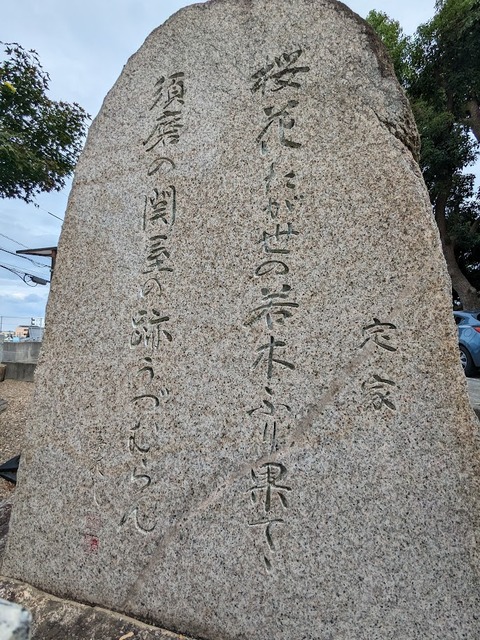 定家
櫻花たが世の若木ふり果てゝ
須磨の関屋の跡うづむらん